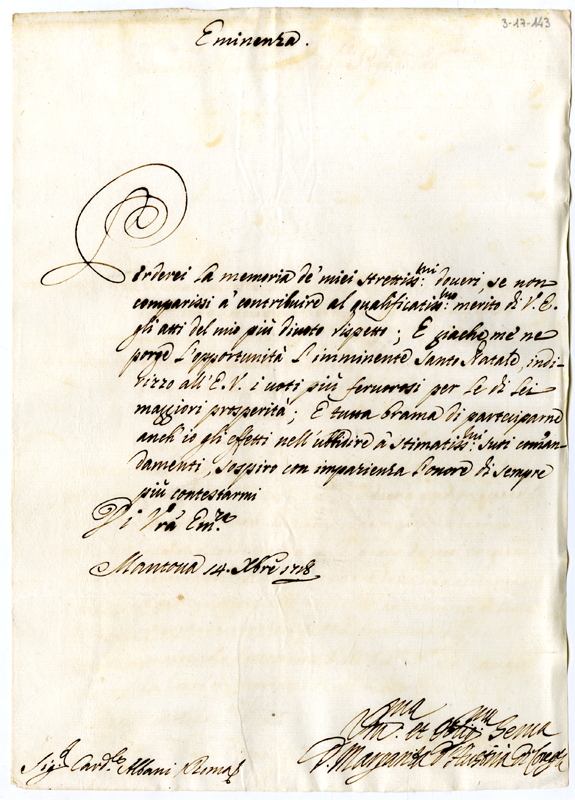 3-17-143
Eminenza.
Perderei la memoria de' miei strettiss:mi doveri, se non
comparissi à contribuire al qualificatiss:mo merito di V. E.
gli atti del mio più divoto rispetto; E giache me ne
porge l'opportunità l'imminente Santo Natale, indi-
rizzo all' E. V. i voti più fervorosi per le di lei
maggiori prosperità; E tutta brama di participarne
anch'io gli effetti nell'ubbidire à stimatiss:mi suoi coman-
damenti, sospiro con impazienza l'onore di sempre
più contestarmi
Di Vra Em.za
Mantova 14. Xbre 1718
Sig.r Card.le Albani Roma
Um.ma et Obbl.ma Serva
D. Margarita d'Austria